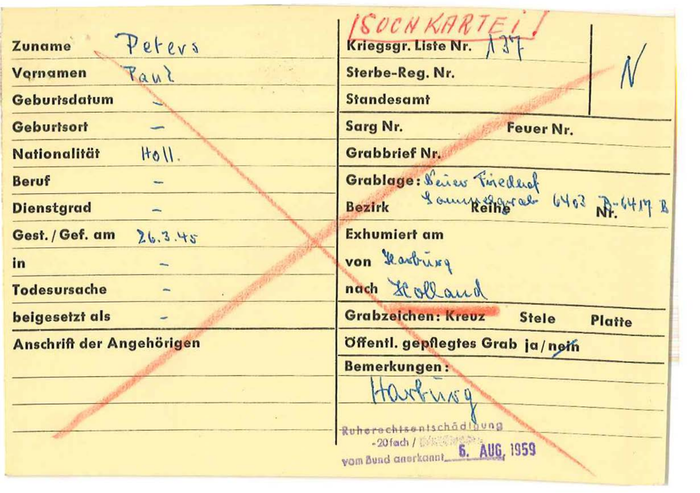 SUCHKARTEI!
Zuname Peters
Vornamen Paul
Geburtsdatum –
Geburtsort –
Nationalität Holl.
Beruf –
Dienstgrad –
Gest./Gef. am 26.3.45
in –
Todesursache –
beigesetzt als –
Anschrift der Angehörigen
Kriegsgr. Liste Nr. 137
N
Sterbe-Reg. Nr.
Standesamt
Sarg Nr. Feuer Nr.
Grabbrief Nr.
Grablage: Neuer Friedhof
Bezirk Sammelgrab Reihe 6403 B-6417 B Nr.
Exhumiert am
von Harburg
nach Holland
Grabzeichen: Kreuz Stele Platte
Öffentl. gepflegtes Grab ja/nein
Bemerkungen:
Harburg
Ruherechtsentschädigung
-20fach /
vom Bund anerkannt 6. AUG. 1959